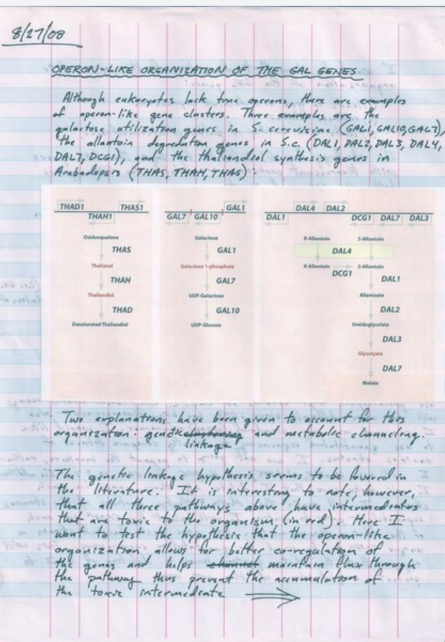 8/27/08
OPERON-LIKE ORGANIZATION OF THE GAL GENES
Although eukaryotes lack true operons, there are examples
of operon-like gene clusters. Three examples are the
galactose utilization genes in S. cerevisiae (GAL1, GAL10, GAL7),
the allantoin degradation genes in S.c. (DAL1, DAL2, DAL3, DAL4,
DAL7, DCG1), and the thalianol synthesis genes in
Arabadopsis (THAS, THAH, THAS).
THAD1 THAS1
THAH1
Oxidosqualene
THAS
Thalianol
THAH
Thaliandiol
THAD
Desaturated Thaliandiol
GAL1
GAL7 GAL10
Galactose
GAL1
Galactose 1-phosphate
GAL7
UDP-Galactose
GAL10
UDP-Glucose
DAL4 DAL2
DAL1 DCG1 DAL7 DAL3
R-Allantoin S-Allantoin
DAL4
R-Allantoin S-Allantoin
DCG1
DAL1
Allantoate
DAL2
Ureidoglycolate
DAL3
Glyoxylate
DAL7
Malate
Two explanations have been given to account for this
organization: genetic linkage and metabolic channeling.
The genetic linkage hypothesis seems to be favored in
the literature. It is interesting to note, however,
that all three pathways above have intermediates
that are toxic to the organism, (in red). Here I
want to test the hypothesis that the operon-like
organization allows for better co-regulation of
the genes and helps maintain flux through
the pathway thus prevent the accumulation of
the toxic intermediate